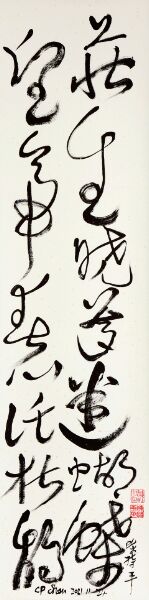 莊生曉夢迷蝴蝶
望帝春心託杜鵑
CP chan 2021.11.